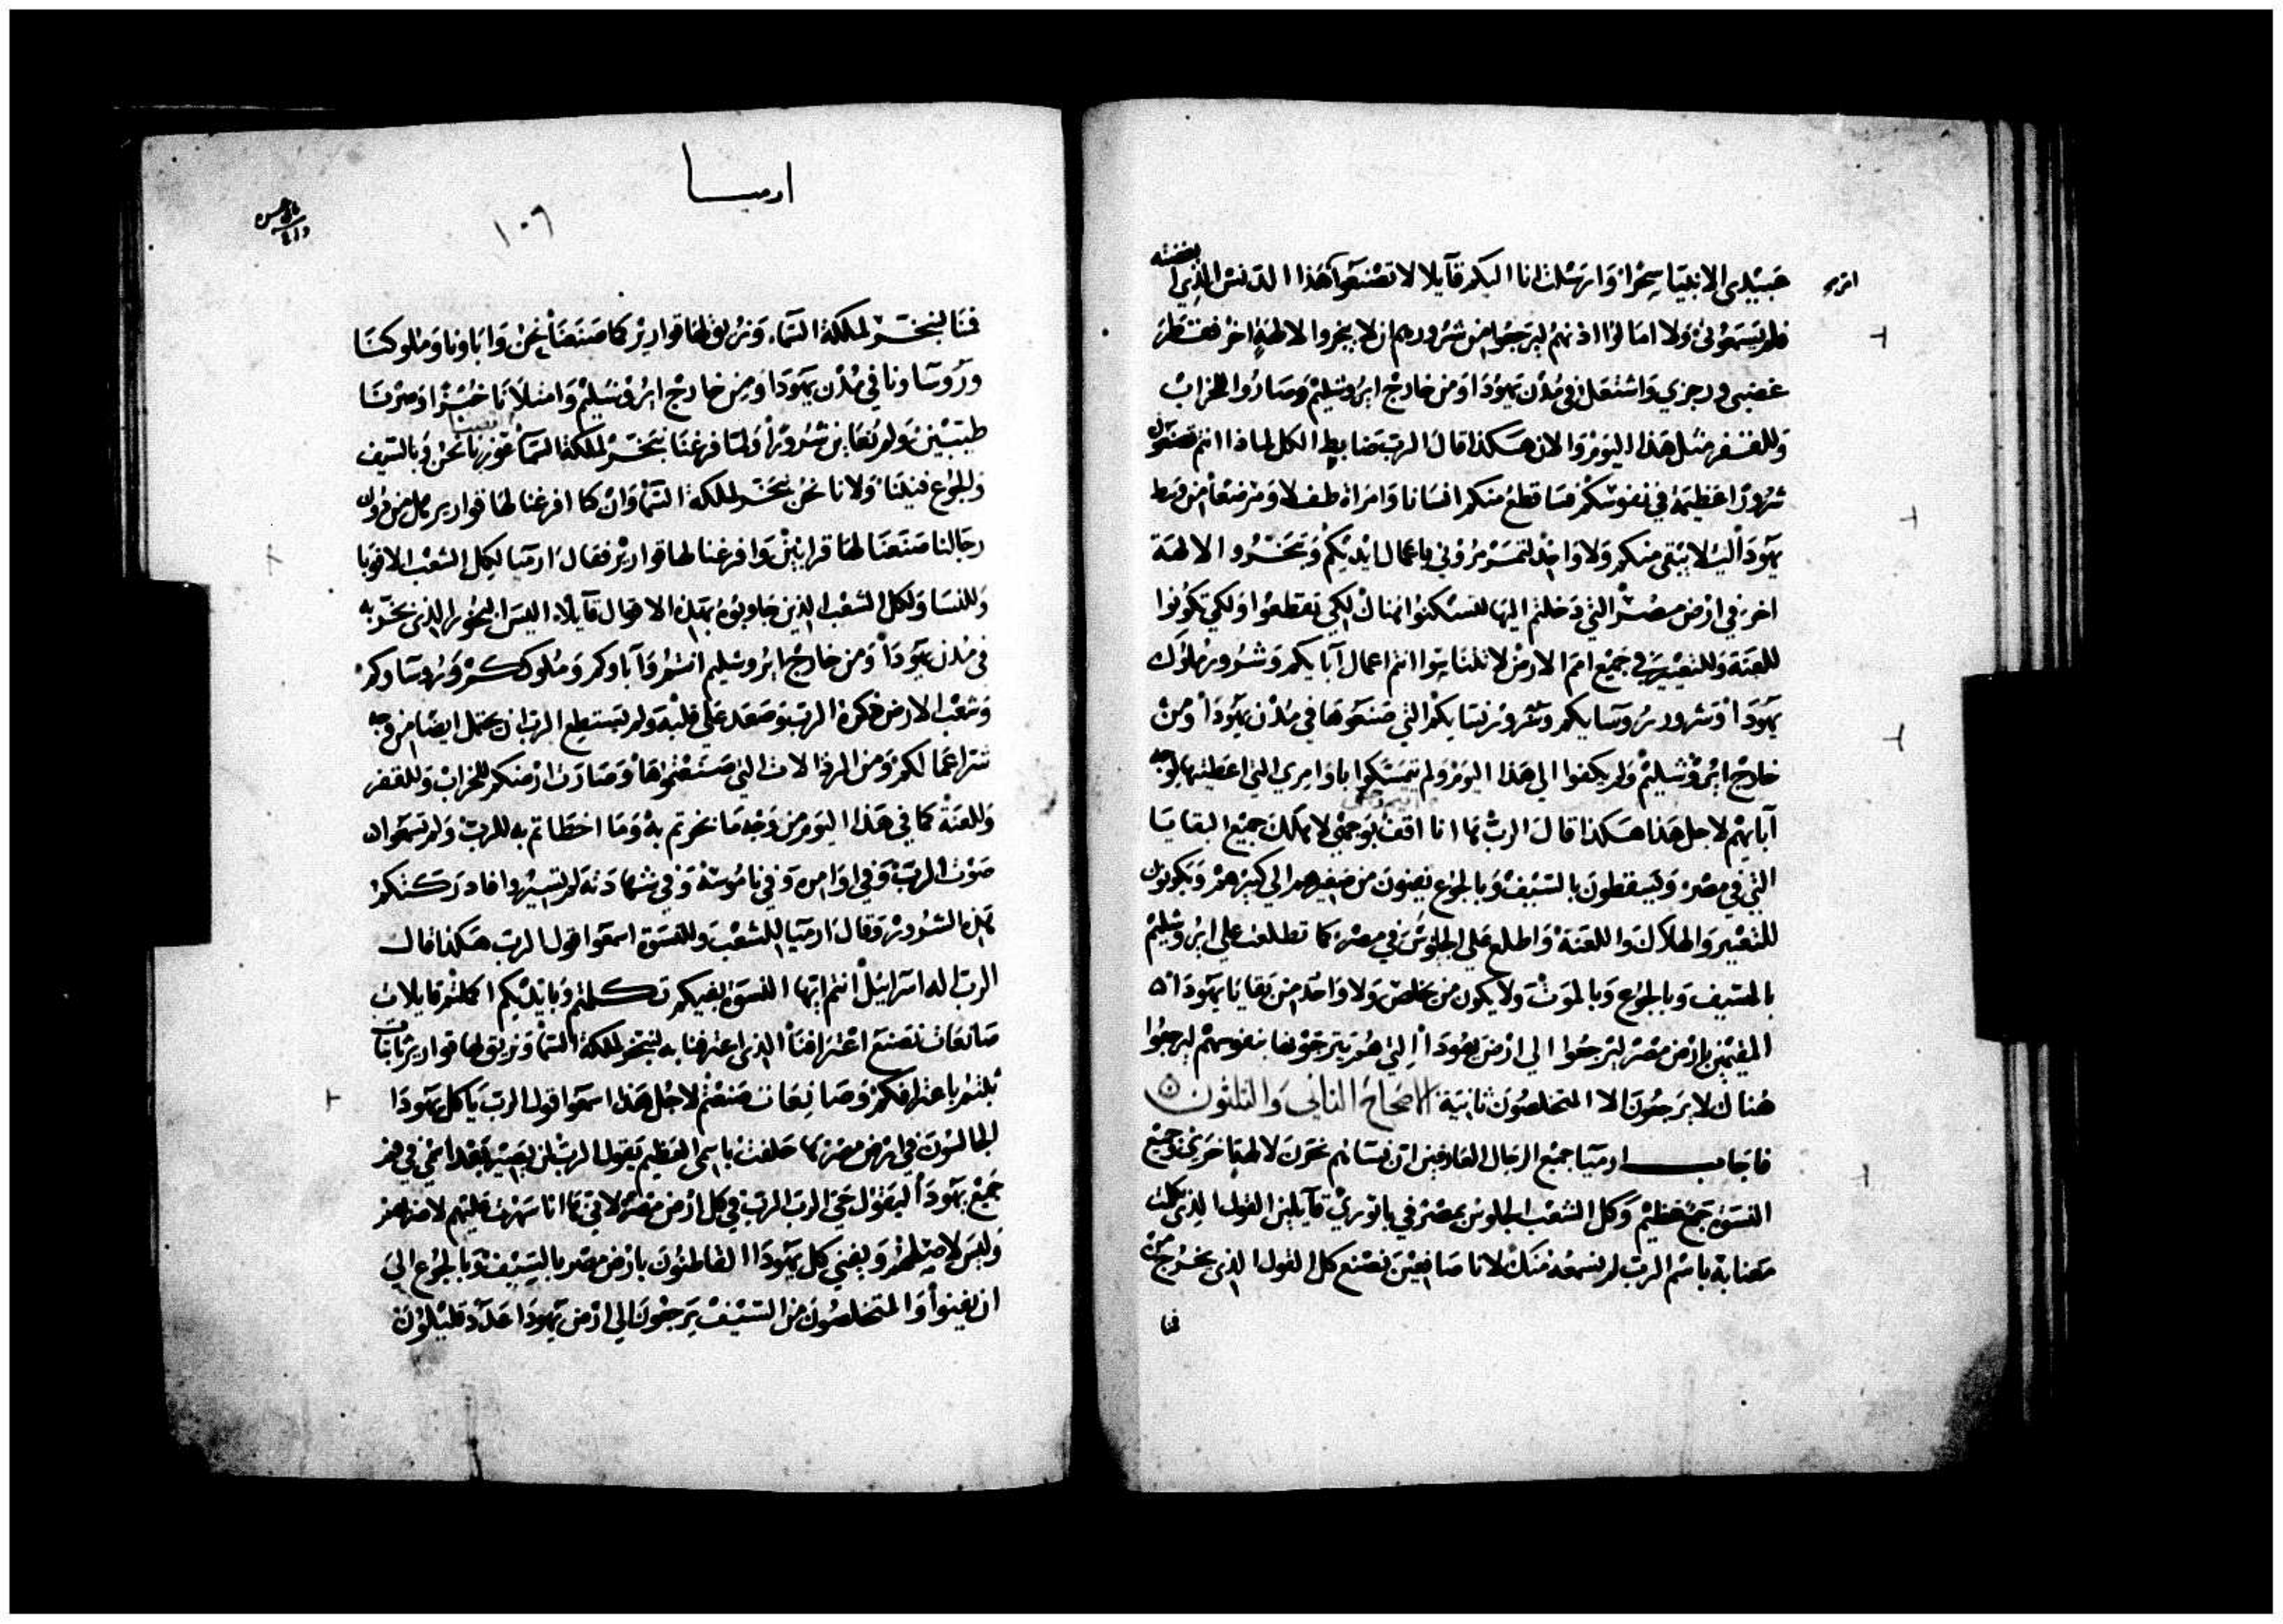 عبيدى الانبيا سحرًا وارسلت انا اليكم قآيلا لا تصنعوا هذا الدنس الذى ابغضته
فلم يسمعونى ولا امالوا اذنهم ليرجعوا من شرورهم ان لا يبخروا لالهةٍ اخر فقطر
غضبى ورجزي واشتعل فى مدن يهودا ومن خارج ايروشليم وصاروا للخراب
وللقفر مثل هذا اليوم والان هكذا قال الرب ضابط الكل لماذا انتم تصنعون
شرورًا عظيمة في نفوسكم فساقطع منكم انسانا وامراة طفلا ومرضعًا من وسط
يهودا لئلا يبقى منكم ولا واحد لتمرمرونى باعمال ايديكم وتبخروا الالهة
اخر في ارض مصر التي دخلتم اليها لتسكنوا هناك لكي تقطعوا ولكي تكونوا
للعنة وللتعيير في جميع امم الارض لا تتناسوا انتم اعمال آبايكم وشرور ملوك
يهودا وشرور روسايكم وشرور نسايكم التي صنعوها في مدن يهودا ومن
خارج ايروشليم ولم يكفوا الي هذا اليوم ولم يتمسكوا باوامري التي اعطيتها لوجه
آبايهم لاجل هذا هكذا قال الرب ها انا اقف بوجهي لاهلك جميع البقايا
التي في مصر ويسقطون بالسيف وبالجوع يفنون من صغيرهم الي كبيرهم ويكونون
للتعيير والهلاك واللعنة واطلع علي الجلوس في مصر كما تطلعت علي ايروشليم
بالسيف وبالجوع وبالموت ولا يكون من يخلص ولا واحد من بقايا يهودا
المقيمين بارض مصر ليرجعوا الي ارض يهودا التي هم يترجون بها بنفوسهم ليرجعوا
هناك لا يرجعون الا المتخلصون ثانية الاصحاح الثاني والثلثون
فاجاب ارميا جميع الرجال العارفين ان نسانهم يبخرن لالهة اخرى وجميع
النسوة جمع عظيم وكل الشعب الجلوس بمصر في باتوري قآيلين القول الذي كلمت
معنا به باسم الرب لم نسمعه منك لانا صانعين نصنع كل القول الذي يخرج من
فنا
ارميا
١٠٦
فنا لنبخر لملكة السماء ونريق لها قوارير كما صنعنا نحن واباونا وملوكنا
وروساونا في مدن يهودا ومن خارج ايروشليم وامتلانا خبزا وصرنا
طيبين ولم نعاين شرورًا ولما فرغنا نبخر لملكة السما عوزنا نحن وبالسيف
وبالجوع فنينا ولانا نحن نبخر لملكة السما وان كنا افرغنا لها قوارير هل من دون
رجالنا صنعنا لها قرابين وافرغنا لها قوارير فقال ارميا لكل الشعب الاقويا
وللنسا ولكل الشعب الذين جاوبوه بهذه الاقوال قآيلًا اليس البخور الذى بخرتم به
فى مدن يهودا ومن خارج ايروشليم انتم وآباوكم وملوككم وروساوكم
وشعب الارض ذكره الرب وصعد علي قلبه ولم يستطيع الرب ان يحتمل ايضا من وجه
شر اعمالكم ومن الرذالات التي صنعتموها وصارت ارضكم للخراب وللقفر
وللعنة كما في هذا اليوم من وجه ما بخرتم به وما اخطاتم به للرب ولم تسمعوا
صوت الرب وفي اوامره وفي ناموسه وفي شهادته لم تسيروا فادركتكم
هذه الشرور وقال ارميا للشعب وللنسوة اسمعوا قول الرب هكذا قال
الرب اله اسرائيل انتم ايتها النسوة بفيكم تكلمتم وبايديكم اكملتم قايلات
صانعات نصنع اعترافنا الذى اعترفنا به لنبخر لملكة السما ونريق لها قوارير ثابتات
ثبتم باعترافكم وصانعات صنعتم لاجل هذا اسمعوا قول الرب يا كل يهودا
الجالسون في ارض مصر ها حلفت باسمى العظيم يقول الرب لن يصير بعد اسمي في فم
جميع يهودا ليقول حي الرب الرب في كل ارض مصر لانى ها انا سهرت عليهم لاضرهم
وليس لاصلحهم ويفني كل يهودا القاطنون بارض مصر بالسيف وبالجوع الي
ان يفنوا والمتخلصون من السيف يرجعون الي ارض يهودا عدد قليلون